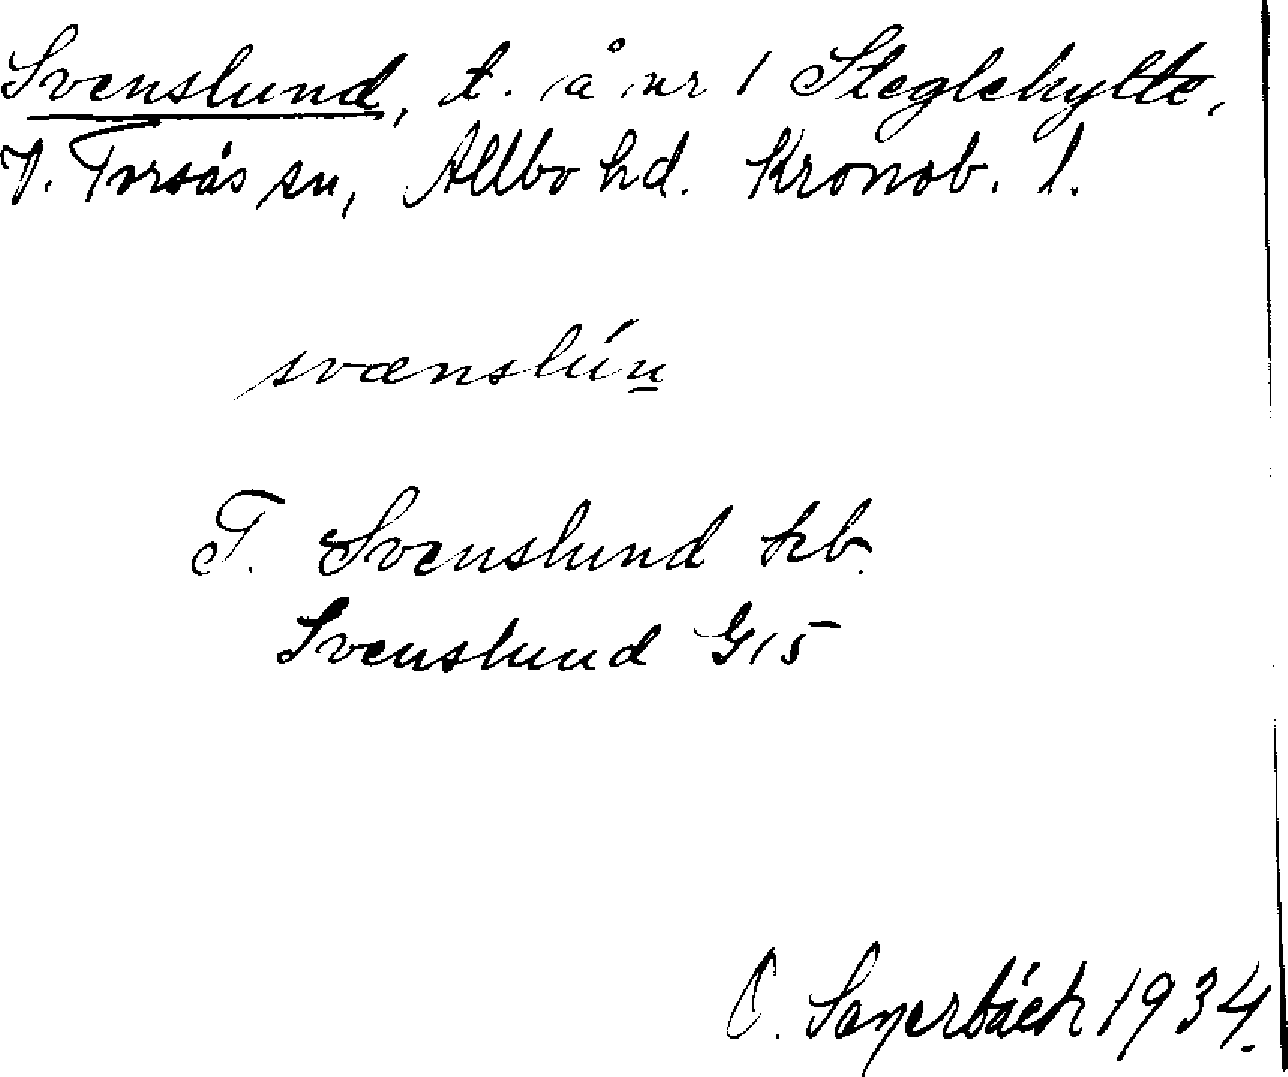 Svenslund, t. å nr 1 Steglehylte,
V. Torsås sn, Allbo hd. Kronob. l.
svænslún
T. Svenslund kb.
Svenslund G15
O. 1934.